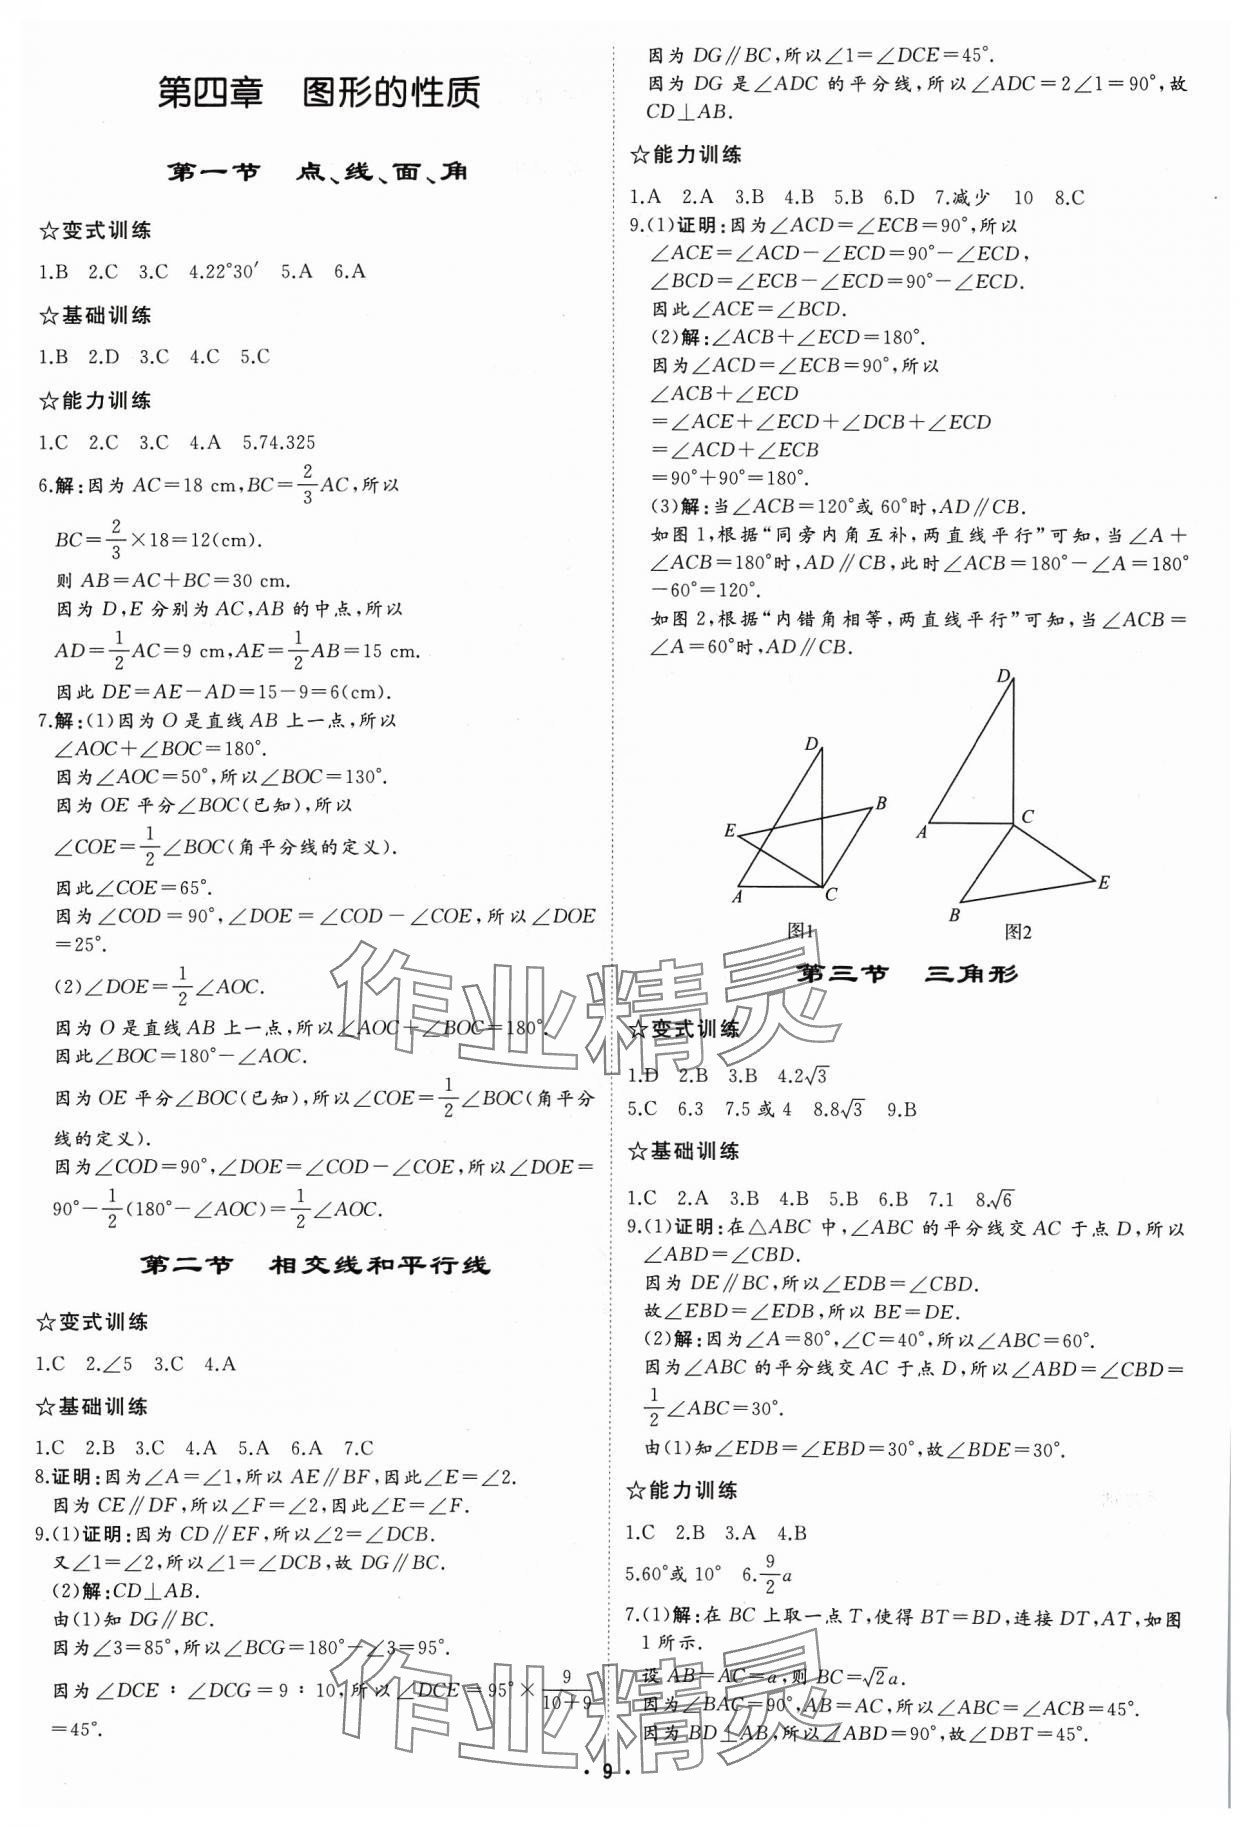 第四章 图形的性质
第一节 点、线、面、角
☆变式训练
1.B 2.C 3.C 4.22°30′ 5.A 6.A
☆基础训练
1.B 2.D 3.C 4.C 5.C
☆能力训练
1.C 2.C 3.C 4.A 5.74.325
6.解:因为 AC=18 cm,BC=2/3AC,所以
BC=2/3×18=12(cm).
则 AB=AC+BC=30 cm.
因为 D,E 分别为 AC,AB 的中点,所以
AD=1/2AC=9 cm,AE=1/2AB=15 cm.
因此 DE=AE-AD=15-9=6(cm).
7.解:(1)因为 O 是直线 AB 上一点,所以
∠AOC+∠BOC=180°.
因为∠AOC=50°,所以∠BOC=130°.
因为 OE 平分∠BOC(已知),所以
∠COE=1/2∠BOC(角平分线的定义).
因此∠COE=65°.
因为∠COD=90°,∠DOE=∠COD-∠COE,所以∠DOE
=25°.
(2)∠DOE=1/2∠AOC.
因为 O 是直线 AB 上一点,所以∠AOC+∠BOC=180°.
因此∠BOC=180°-∠AOC.
因为 OE 平分∠BOC(已知),所以∠COE=1/2∠BOC(角平分
线的定义).
因为∠COD=90°,∠DOE=∠COD-∠COE,所以∠DOE=
90°-1/2(180°-∠AOC)=1/2∠AOC.
第二节 相交线和平行线
☆变式训练
1.C 2.∠5 3.C 4.A
☆基础训练
1.C 2.B 3.C 4.A 5.A 6.A 7.C
8.证明:因为∠A=∠1,所以 AE∥BF,因此∠E=∠2.
因为 CE∥DF,所以∠F=∠2,因此∠E=∠F.
9.(1)证明:因为 CD∥EF,所以∠2=∠DCB.
又∠1=∠2,所以∠1=∠DCB,故 DG∥BC.
(2)解:CD⊥AB.
由(1)知 DG∥BC.
因为∠3=85°,所以∠BCG=180°-∠3=95°.
因为∠DCE∶∠DCG=9∶10,所以∠DCE=95°×9/(10+9)
=45°.
因为 DG∥BC,所以∠1=∠DCE=45°.
因为 DG 是∠ADC 的平分线,所以∠ADC=2∠1=90°,故
CD⊥AB.
☆能力训练
1.A 2.A 3.B 4.B 5.B 6.D 7.减少 10 8.C
9.(1)证明:因为∠ACD=∠ECB=90°,所以
∠ACE=∠ACD-∠ECD=90°-∠ECD,
∠BCD=∠ECB-∠ECD=90°-∠ECD.
因此∠ACE=∠BCD.
(2)解:∠ACB+∠ECD=180°.
因为∠ACD=∠ECB=90°,所以
∠ACB+∠ECD
=∠ACE+∠ECD+∠DCB+∠ECD
=∠ACD+∠ECB
=90°+90°=180°.
(3)解:当∠ACB=120°或 60°时,AD∥CB.
如图 1,根据“同旁内角互补,两直线平行”可知,当∠A+
∠ACB=180°时,AD∥CB,此时∠ACB=180°-∠A=180°
-60°=120°.
如图 2,根据“内错角相等,两直线平行”可知,当∠ACB=
∠A=60°时,AD∥CB.
D
E
B
A
C
图1
D
A
C
B
E
图2
第三节 三角形
☆变式训练
1.D 2.B 3.B 4.2√3
5.C 6.3 7.5 或 4 8.8√3 9.B
☆基础训练
1.C 2.A 3.B 4.B 5.B 6.B 7.1 8.√6
9.(1)证明:在△ABC 中,∠ABC 的平分线交 AC 于点 D,所以
∠ABD=∠CBD.
因为 DE∥BC,所以∠EDB=∠CBD.
故∠EBD=∠EDB,所以 BE=DE.
(2)解:因为∠A=80°,∠C=40°,所以∠ABC=60°.
因为∠ABC 的平分线交 AC 于点 D,所以∠ABD=∠CBD=
1/2∠ABC=30°.
由(1)知∠EDB=∠EBD=30°,故∠BDE=30°.
☆能力训练
1.C 2.B 3.A 4.B
5.60°或 10° 6.9/2a
7.(1)解:在 BC 上取一点 T,使得 BT=BD,连接 DT,AT,如图
1 所示.
设 AB=AC=a,则 BC=√2a.
因为∠BAC=90°,AB=AC,所以∠ABC=∠ACB=45°.
因为 BD⊥AB,所以∠ABD=90°,故∠DBT=45°.
·9·
作业精灵
作业精灵